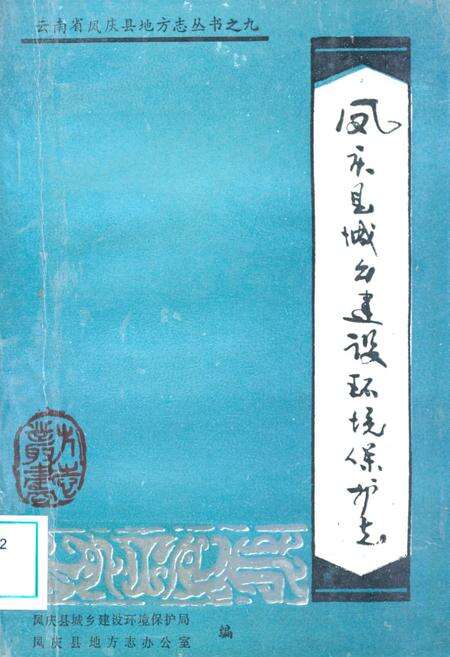 云南省凤庆县地方志丛书之九
凤庆县城乡建设环境保护志
方志
丛書
2
凤庆县城乡建设环境保护局
凤庆县地方志办公室
编